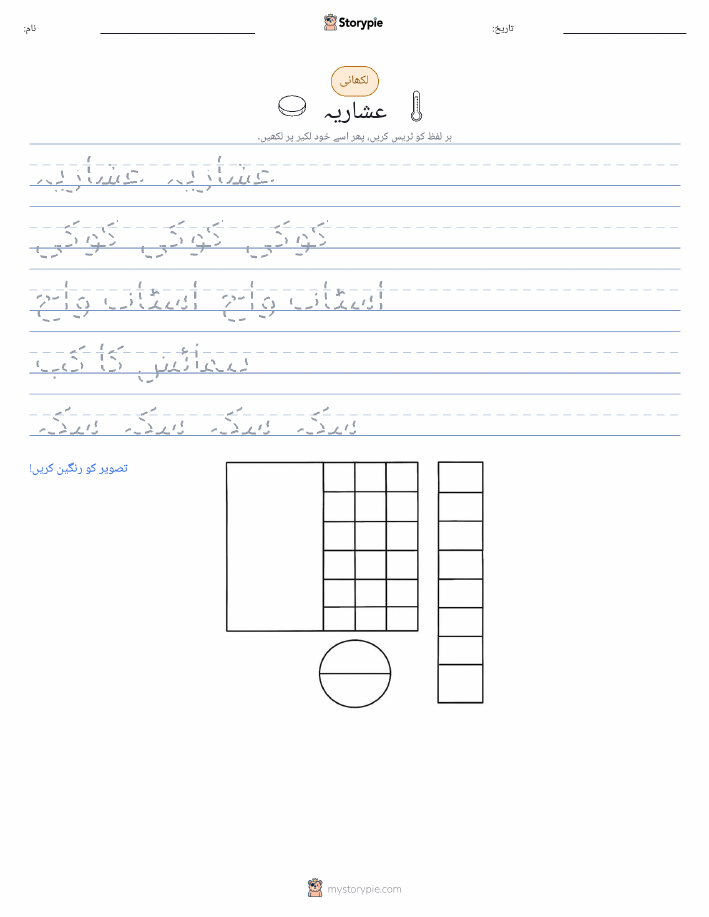 نام:
Storypie
تاریخ:
لکھائی
عشاریہ
ہر لفظ کو ٹریس کریں، پھر اسے خود لکیر پر لکھیں۔
عشاریہ عشاریہ
کوکی کوکی کوکی
اسٹاپ واچ اسٹاپ واچ
پیمائش کا کپ
سکہ سکہ سکہ سکہ
تصویر کو رنگین کریں!
mystorypie.com